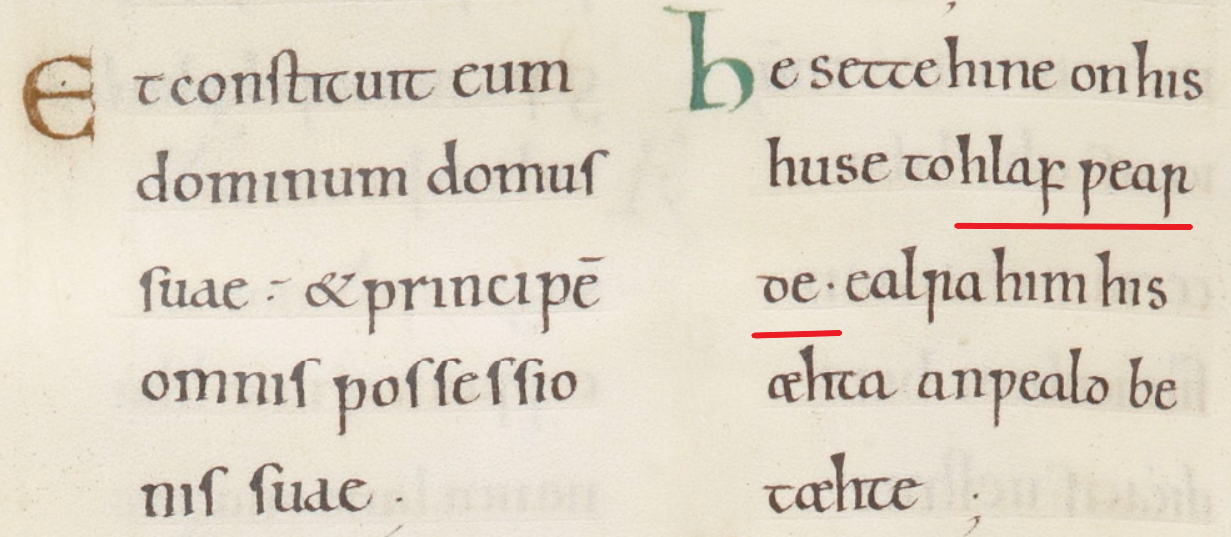 Et conſtituit eum
dominum domuſ
ſuae :- & principē
omniſ poſſeſſio
niſ ſuae .
he sette hine on his
huse to hlaf ƿear
de · ealra him his
æhta anƿeald be
tæhte .